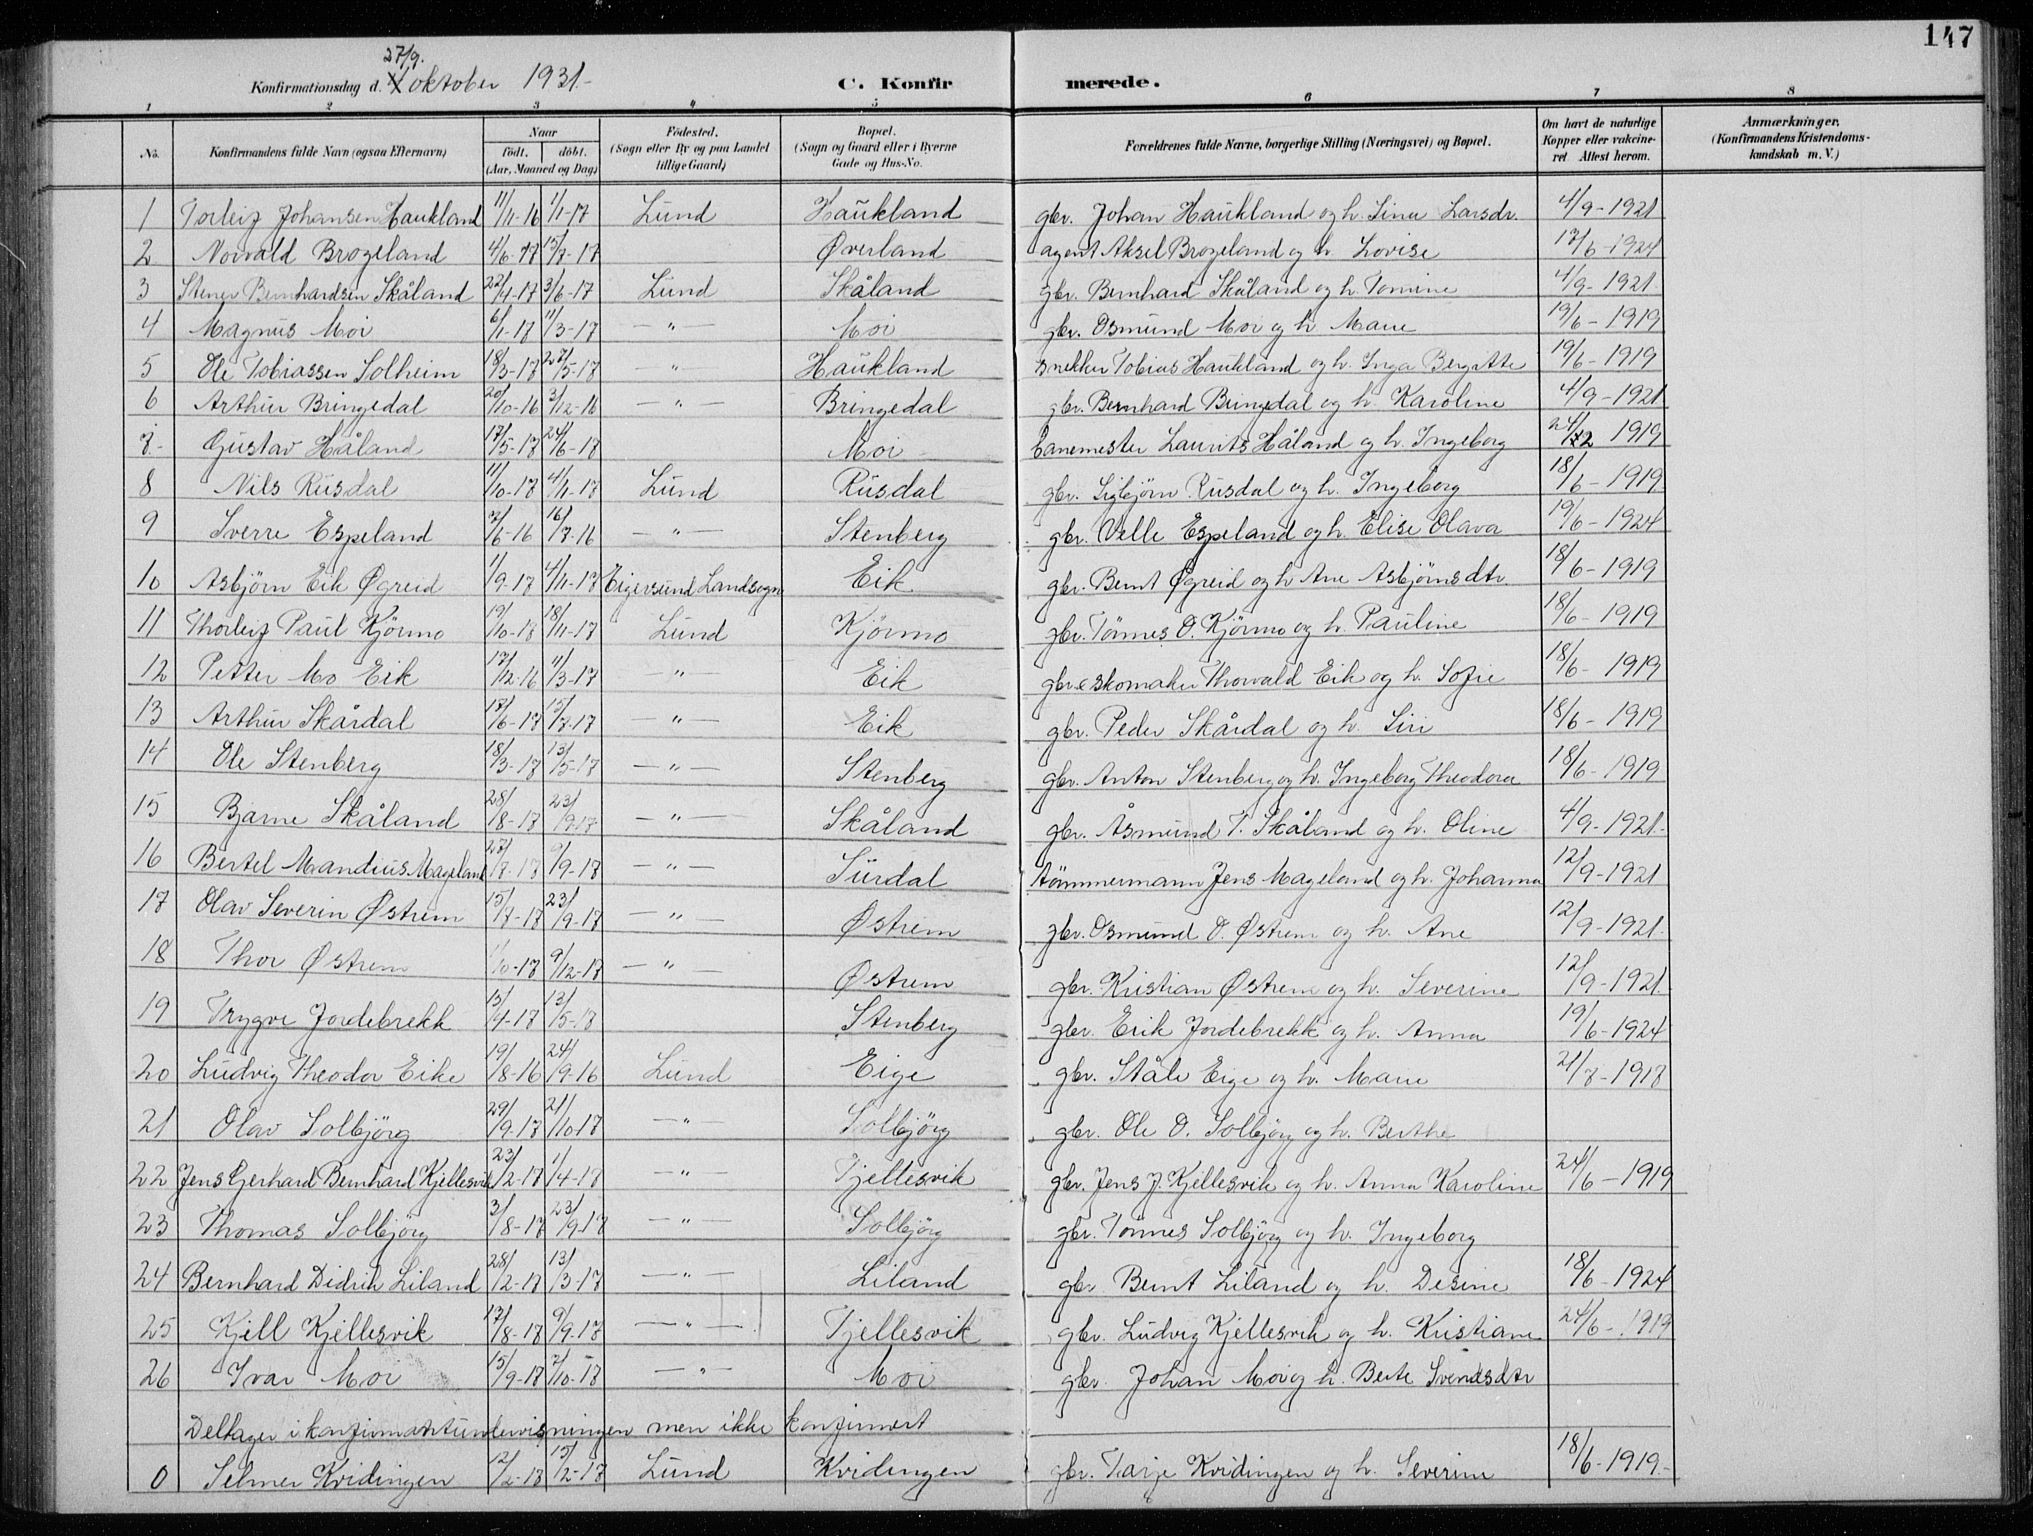 147
27/9.
Konfirmationsdag d. 4 oktober 1931.
C. Konfirmerede.
1 2 3 4 5 6 7 8
No. | Konfirmandens fulde Navn (ogsaa Efternavn) | Naar født. døbt. (Aar, Maaned og Dag) | Födested. (Sogn eller By og paa Landet tillige Gaard) | Bopæl. (Sogn og Gaard eller i Byerne Gade og Hus-No. | Forældrenes fulde Navne, borgerlige Stilling (Næringsvei) og Bopæl. | Om havt de naturlige Kopper eller vakcineret. Attest herom. | Anmærkninger. (Konfirmandens Kristendomskundskab m. V.)
1 Torleif Johansen Haukland 11/11-16 1/1-17 Lund Haukland gbr. Johan Haukland og h. Sina Larsdr. 4/9-1921
2 Norvald Brogeland 4/6-17 15/7-17 Øverland agent Aksel Brogeland og h. Lovise 17/6-1924
3 Stener Bernhardsen Skåland 22/4-17 3/6-17 Lund Skåland gbr. Bernhard Skåland og h. Tomine 4/9-1921.
4 Magnus Moi 6/1-17 11/3-17 —"— Moi gbr. Osmund Moi og h. Marie 19/6-1919
5 Ole Tobiassen Solheim 18/3-17 27/5-17 —"— Haukland snekker Tobias Haukland og h. Inga Bergitte 19/6-1919
6 Arthur Bringedal 20/10-16 3/12-16 —"— Bringedal gbr. Bernhard Bringedal og h. Karoline 4/9-1921
7. Gustav Håland 17/5-17 24/6-17 Moi banemester Laurits Håland og h. Ingeborg 24/12 1919
8 Nils Rusdal 11/10-17 4/11-17 Lund Rusdal gbr. Sigbjørn Rusdal og h. Ingeborg 18/6-1919
9 Sverre Espeland 7/6-16 16/7-16 —"— Stenberg gbr. Velle Espeland og h. Elise Olava 19/6-1924
10 Asbjörn Eik Øgreid 1/9-17 4/11-17 Eigersund Landsogn Eik gbr. Bernt Øgreid og h Ane Asbjörnsdtr 18/6-1919
11 Thorleif Paul Kjörmo 19/10-17 18/11-17 Lund Kjörmo gbr. Tönnes O. Kjörmo og h. Pauline 18/6-1919
12 Petter Mo Eik 17/12-16 11/3-17 —"— Eik gbr & skomaker Thorvald Eik og h. Sofie 18/6-1919
13 Arthur Skårdal 17/6-17 15/7-17 —"— Eik gbr. Peder Skårdal og h. Siri 18/6-1919
14 Ole Stenberg 18/3-17 13/5-17 —"— Stenberg gbr. Anton Stenberg og h. Ingeborg Theodora 18/6-1919
15 Bjarne Skåland 28/8-17 23/9-17 —"— Skåland gbr. Åsmund T. Skåland og h. Oline 4/9-1921.
16 Bertel Mandius Mageland 27/7-17 9/9-17 —"— Surdal tömmermann Jens Mageland og h. Johanna 12/9-1921
17 Olav Severin Østrem 15/7-17 23/9-17 —"— Østrem gbr. Osmund O. Østrem og h. Ane 12/9-1921.
18 Thor Østrem 11/10-17 9/12-17 —"— Østrem gbr. Kristian Østrem og h. Severine 12/9-1921.
19 Trygve Jordebrekk 15/4-17 13/5-17 Stenberg gbr. Erik Jordebrekk og h. Anna 19/6-1924
20 Ludvig Theodor Eike 19/8-16 24/9-16 Lund Eige gbr. Ståle Eige og h. Marie 21/7-1917
21 Olav Solbjörg 29/9-17 21/10-17 —"— Solbjörg gbr. Ole O. Solbjörg og h. Berthe
22 Jens Gerhard Bernhard Kjellesvik 23/2-17 1/4-17 —"— Tjellesvik gbr. Jens J. Kjellesvik og h. Anna Karoline 24/6-1919
23 Thomas Solbjörg 3/8-17 23/9-17 —"— Solbjörg gbr. Tönnes Solbjörg og h. Ingeborg
24 Bernhard Didrik Liland 28/2-17 13/3-17 —"— Liland gbr Bernt Liland og h. Desine 18/6-1924
25 Kjell Kjellesvik 17/8-17 9/9-17 —"— Tjellesvik gbr. Ludvig Kjellesvik og h. Kristiane 24/6-1919
26 Ivar Moi 15/9-17 7/10-17 —"— Moi gbr. Johan Moi og h. Berte Svendsdtr
Deltager i konfirmantundervisningen men ikke konfirmert
0 Selmer Kvidingen 12/2-17 15/2-17 Lund Kvidingen gbr. Tarje Kvidingen og h. Severine 18/6-1919.